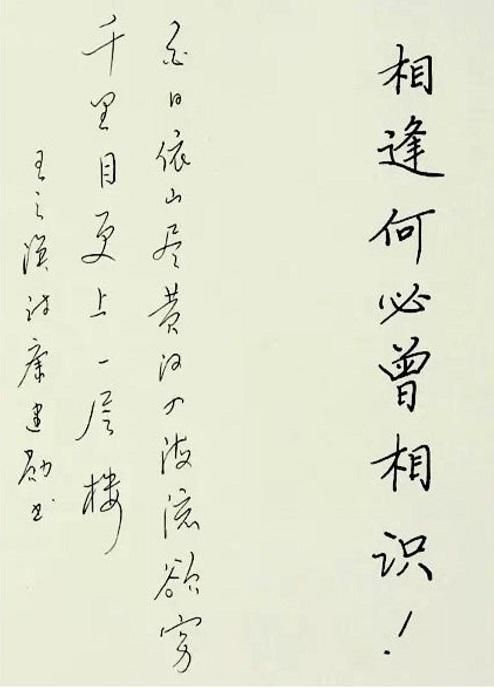 相逢何必曾相识!
白日依山尽黄河入海流欲穷
千里目更上一层楼
王之涣诗康建书